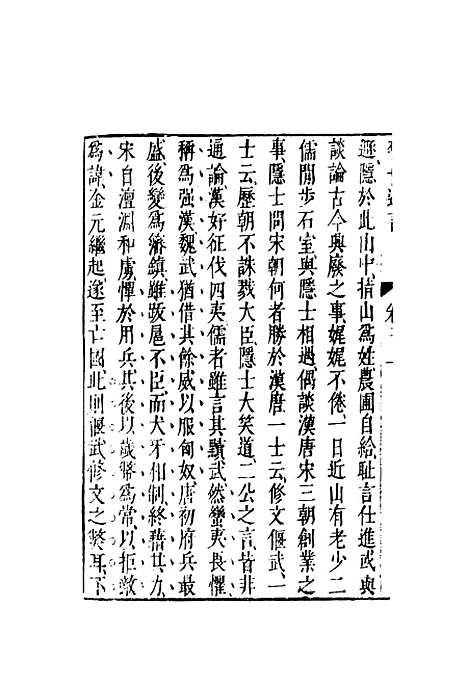 警世通言
卷三十
遯隱於此山中指山爲姓農圃自給耻言仕進或與
談論古今興廢之事娓娓不倦一日近山有老少二
儒閒步石室與隱士相遇偶談漢唐宋三朝創業之
事隱士問宋朝何者勝於漢唐一士云修文偃武一
士云歷朝不誅戮大臣隱士大笑道二公之言皆非
通論漢好征伐四夷儒者雖言其黷武然蠻夷畏懼
稱爲强漢魏武猶借其餘威以服匈奴唐初府兵最
盛後變爲藩鎮雖跋扈不臣而犬牙相制終藉其力
宋自澶淵和虜憚於用兵其後以歲幣爲常以拒敵
爲諱金元繼起遂至亡國此則偃武修文之獘耳不